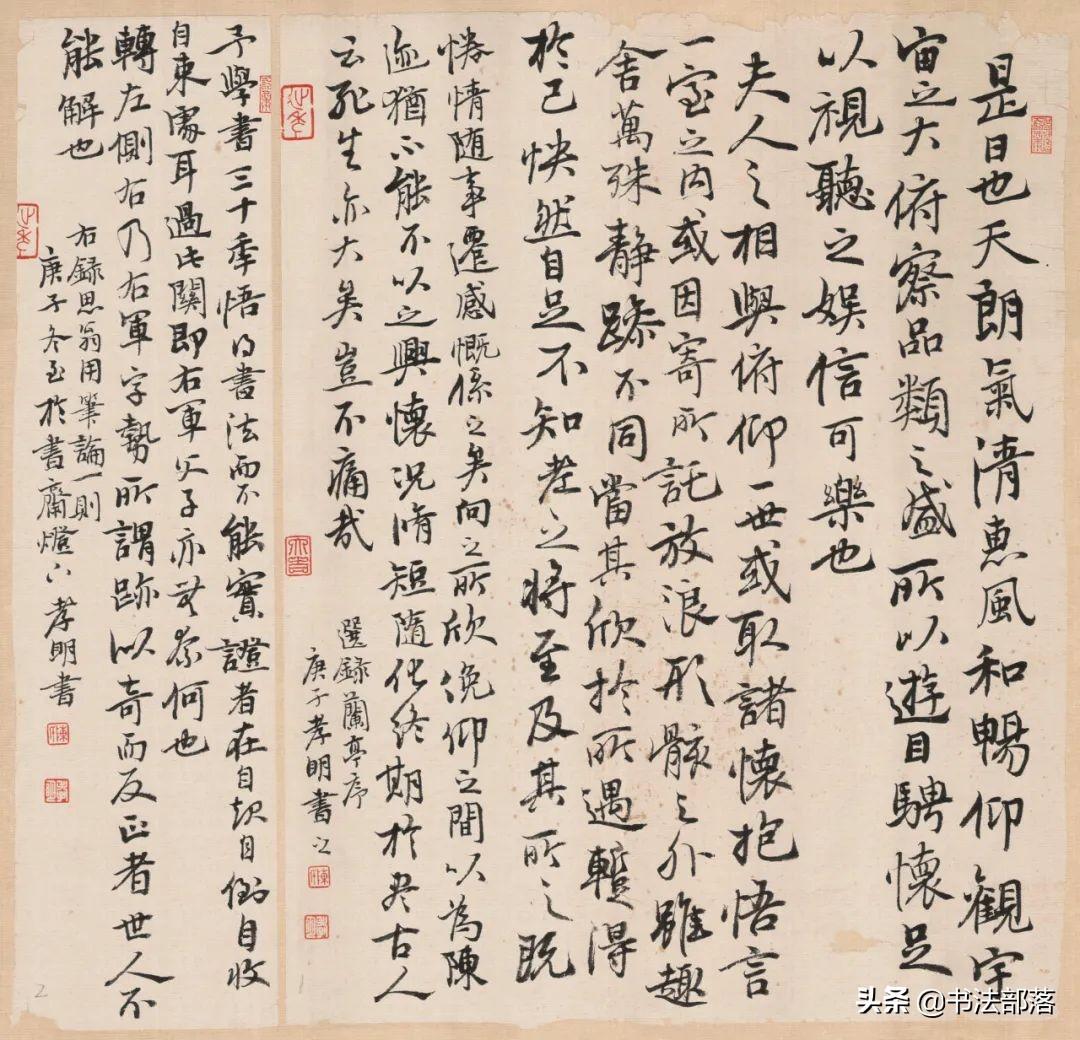 是日也天朗氣清惠風和暢仰觀宇
宙之大俯察品類之盛所以遊目騁懷足
以視聽之娛信可樂也
夫人之相與俯仰一世或取諸懷抱悟言
一室之內或因寄所託放浪形骸之外雖趣
舍萬殊靜躁不同當其欣於所遇蹔得
於己怏然自足不知老之將至及其所之既
惓情隨事遷感慨係之矣向之所欣俛仰之間以為陳
迹猶不能不以之興懷況脩短隨化終期於盡古人
云死生亦大矣豈不痛哉
選錄蘭亭序
庚子孝明書之
予學書三十年悟得書法而不能實證者在自起自倒自收
自束處耳過此關即右軍父子亦無奈何也
轉左側右乃右軍字勢所謂跡以奇而反正者世人不
能解也
右錄思翁用筆論一則
庚子冬至於書齋燈下孝明書
1
2
头条 @书法部落